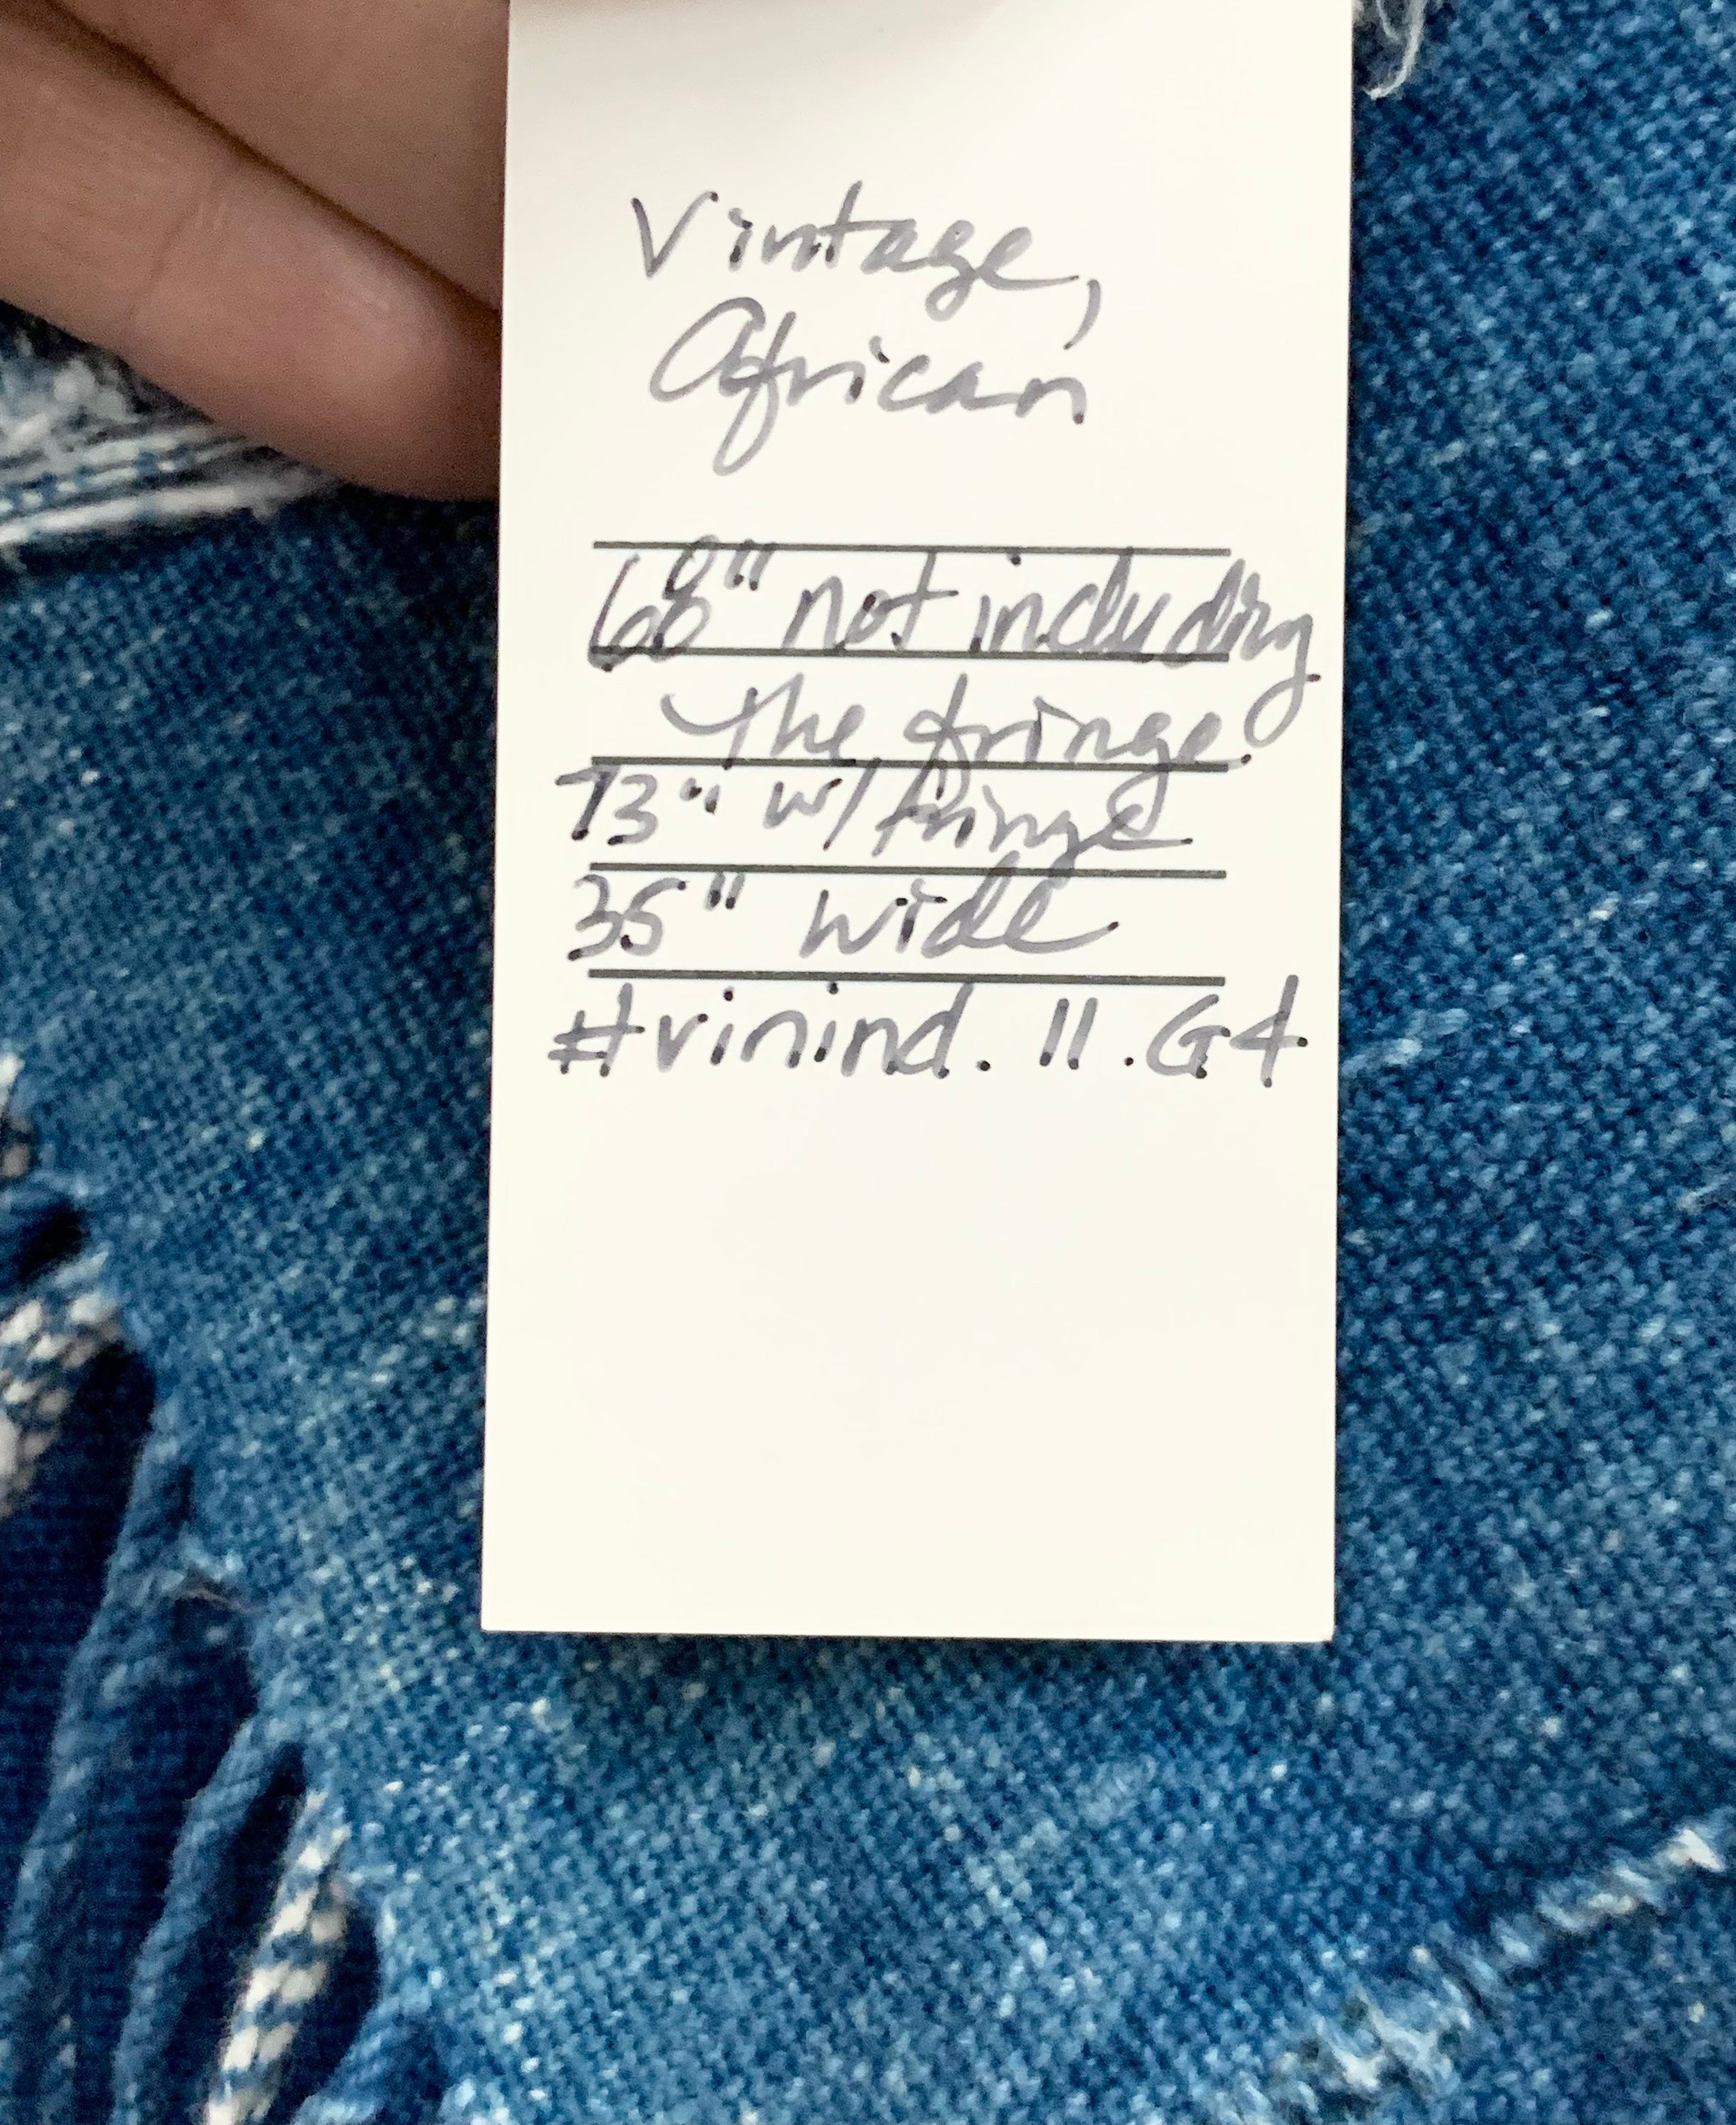 Vintage,
African
68" not including
the fringe.
73" w/ fringe
35" wide
#vinind. 11. G4